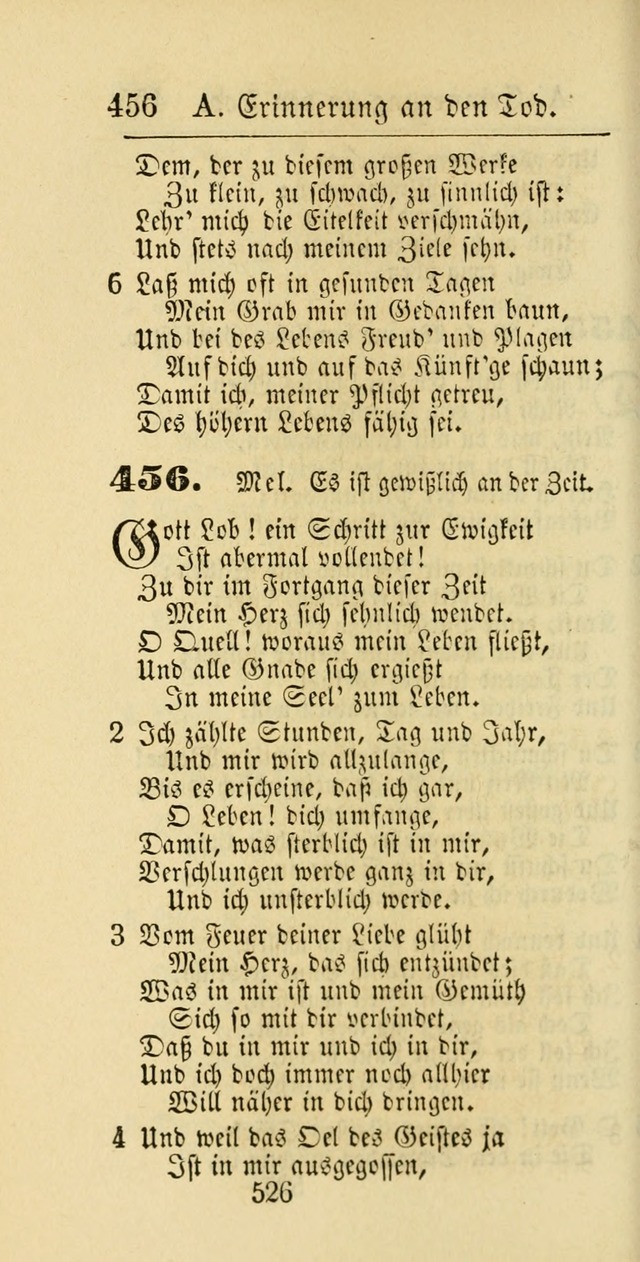 456 A. Erinnerung an den Tod.
Dem, der zu diesem großen Werke
Zu klein, zu schwach, zu sinnlich ist:
Lehr' mich die Eitelkeit verschmähn,
Und stets nach meinem Ziele sehn.
6 Laß mich oft in gesunden Tagen
Mein Grab mir in Gedanken baun,
Und bei des Lebens Freud' und Plagen
Auf dich und auf das Künft'ge schaun;
Damit ich, meiner Pflicht getreu,
Des höhern Lebens fähig sei.
456. Mel. Es ist gewißlich an der Zeit.
Gott Lob! ein Schritt zur Ewigkeit
Ist abermal vollendet!
Zu dir im Fortgang dieser Zeit
Mein Herz sich sehnlich wendet.
O Quell! woraus mein Leben fließt,
Und alle Gnade sich ergießt
In meine Seel' zum Leben.
2 Ich zählte Stunden, Tag und Jahr,
Und mir wird allzulange,
Bis es erscheine, daß ich gar,
O Leben! dich umfange,
Damit, was sterblich ist in mir,
Verschlungen werde ganz in dir,
Und ich unsterblich werde.
3 Vom Feuer deiner Liebe glüht
Mein Herz, das sich entzündet;
Was in mir ist und mein Gemüth
Sich so mit dir verbindet,
Daß du in mir und ich in dir,
Und ich doch immer noch allhier
Will näher in dich bringen.
4 Und weil das Oel des Geistes ja
Ist in mir ausgegossen,
526